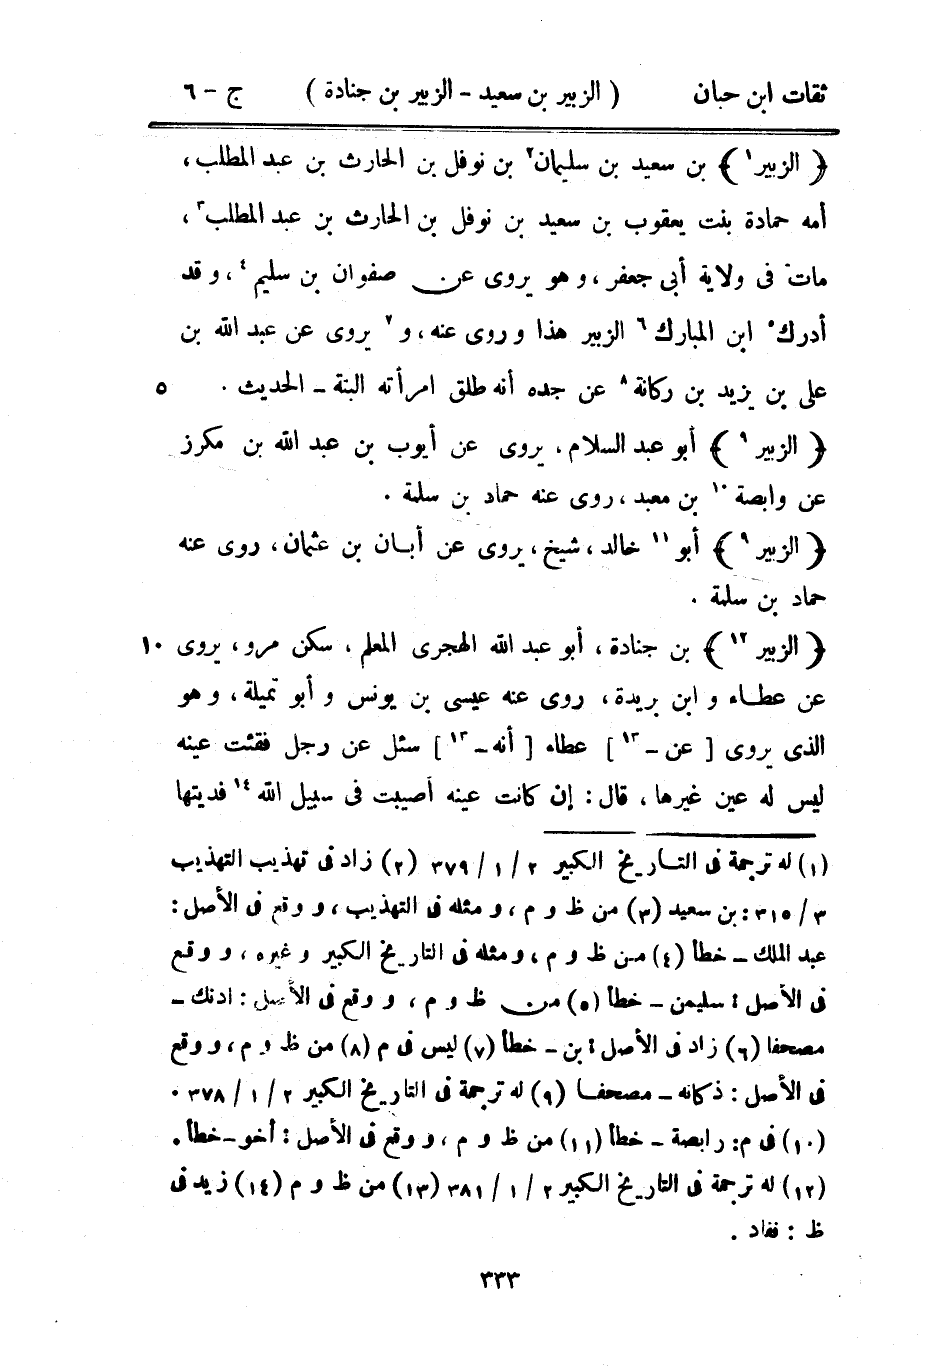 ثقات ابن حبان ( الزبير بن سعيد - الزبير بن جنادة ) ج - ٦
﴿ الزبير ١ ﴾ بن سعيد بن سليمان ٢ بن نوفل بن الحارث بن عبد المطلب ،
أمه حمادة بنت يعقوب بن سعيد بن نوفل بن الحارث بن عبد المطلب ٣ ،
مات فى ولاية أبى جعفر ، و هو يروى عن صفوان بن سليم ٤ ، و قد
أدرك ٥ ابن المبارك ٦ الزبير هذا و روى عنه ، و ٧ يروى عن عبد الله بن
على بن يزيد بن ركانة ٨ عن جده أنه طلق امرأته البتة - الحديث . ٥
﴿ الزبير ٩ ﴾ أبو عبد السلام ، يروى عن أيوب بن عبد الله بن مكرز
عن وابصة ١٠ بن معبد ، روى عنه حماد بن سلمة .
﴿ الزبير ٩ ﴾ أبو ١١ خالد ، شيخ ، يروى عن أبان بن عثمان ، روى عنه
حماد بن سلمة .
﴿ الزبير ١٢ ﴾ بن جنادة ، أبو عبد الله الهجرى المعلم ، سكن مرو ، يروى ١٠
عن عطاء و ابن بريدة ، روى عنه عيسى بن يونس و أبو تميلة ، و هو
الذى يروى [ عن - ١٣ ] عطاء [ أنه - ١٣ ] سئل عن رجل فقئت عينه
ليس له عين غيرها ، قال : إن كانت عينه أصيبت فى سبيل الله ١٤ فديتها
(١) له ترجمة فى التاريخ الكبير ٢ / ١ / ٣٧٩ (٢) زاد فى تهذيب التهذيب
٣ / ٣١٥ : بن سعيد (٣) من ظ و م ، و مثله فى التهذيب ، و وقع فى الأصل :
عبد الملك - خطأ (٤) من ظ و م ، و مثله فى التاريخ الكبير و غيره ، و وقع
فى الأصل : سليمن - خطأ (٥) من ظ و م ، و وقع فى الأصل : ادنك -
مصحفا (٦) زاد فى الأصل : بن - خطأ (٧) ليس فى م (٨) من ظ و م ، و وقع
فى الأصل : ذكانه - مصحفا (٩) له ترجمة فى التاريخ الكبير ٢ / ١ / ٣٧٨ .
(١٠) فى م : رابصة - خطأ (١١) من ظ و م ، و وقع فى الأصل : أخو - خطأ .
(١٢) له ترجمة فى التاريخ الكبير ٢ / ١ / ٣٨١ (١٣) من ظ و م (١٤) زيد فى
ظ : ففاد .
٣٣٣